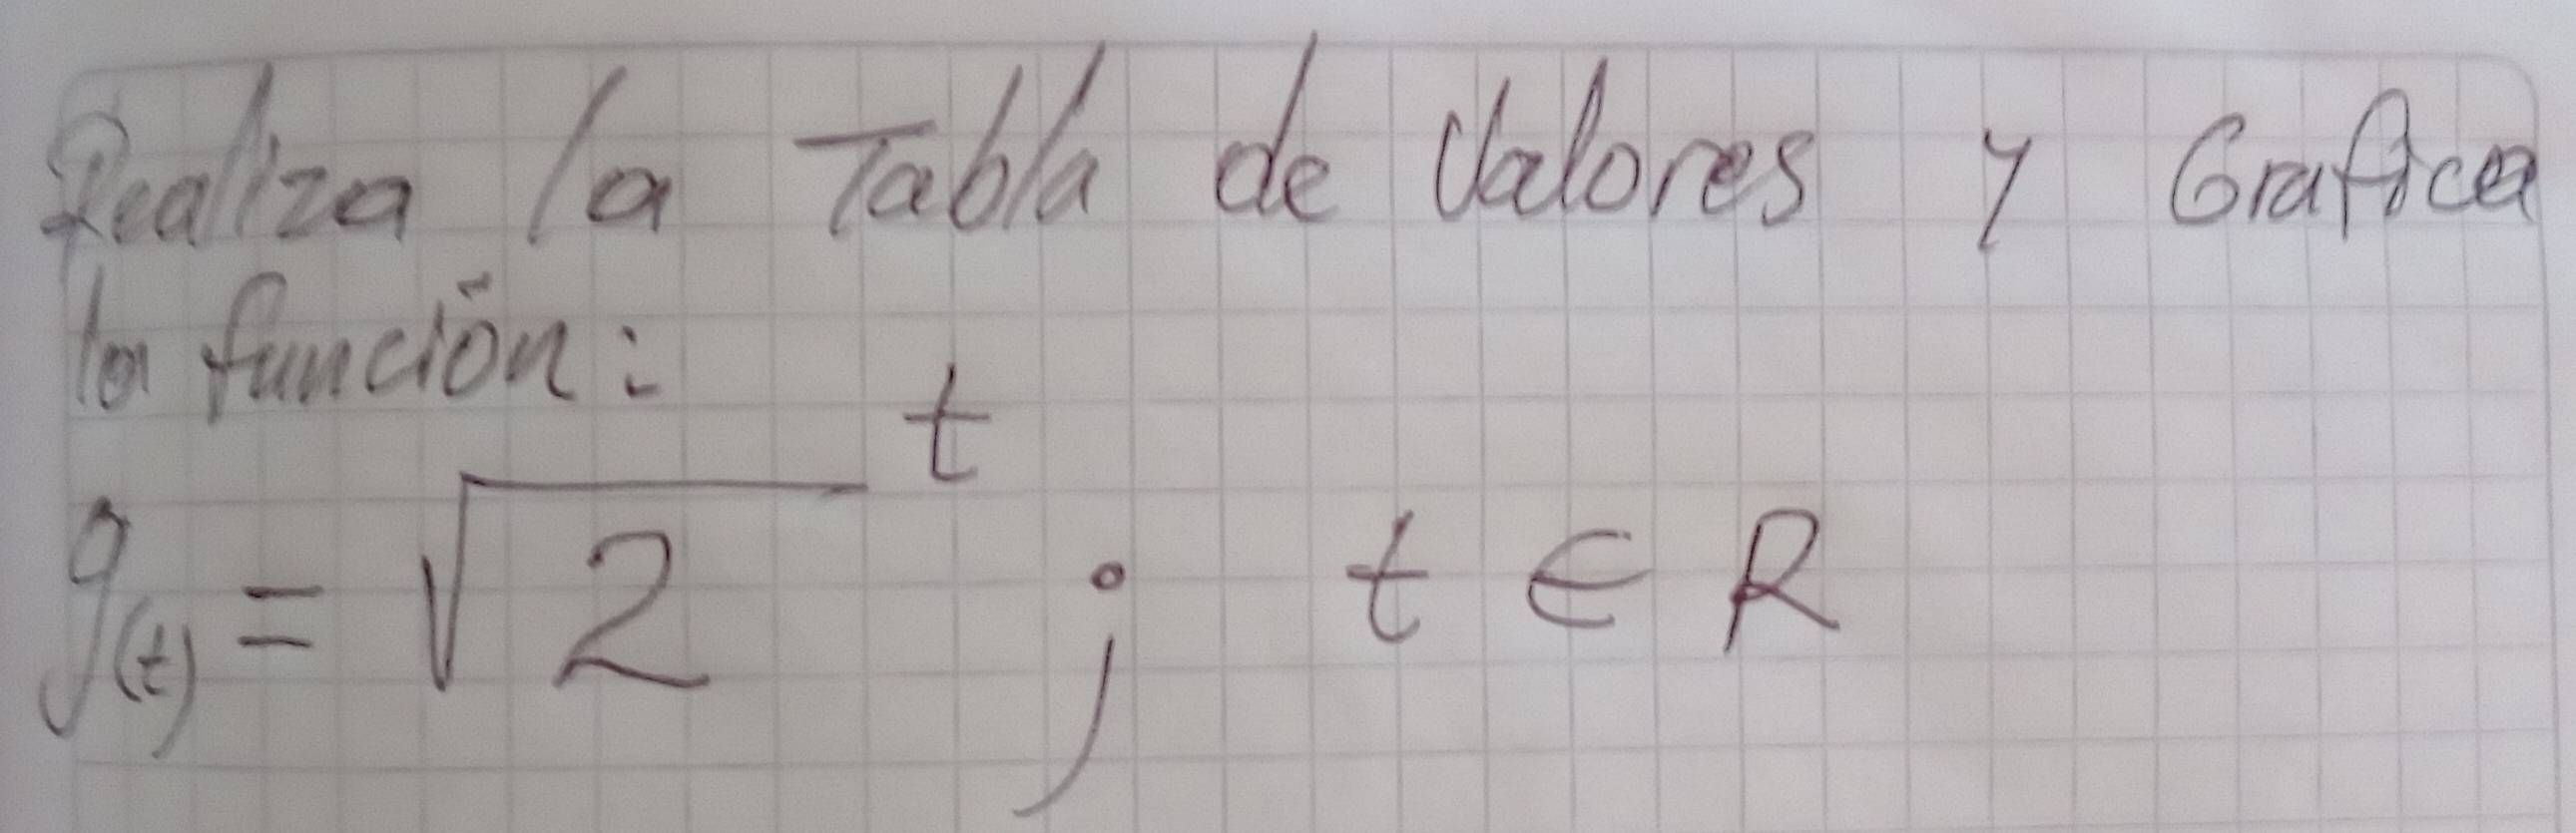 Realiza la Tabla de Valores y Grafica
la función:
g(t) = √2^t ; t ∈ R